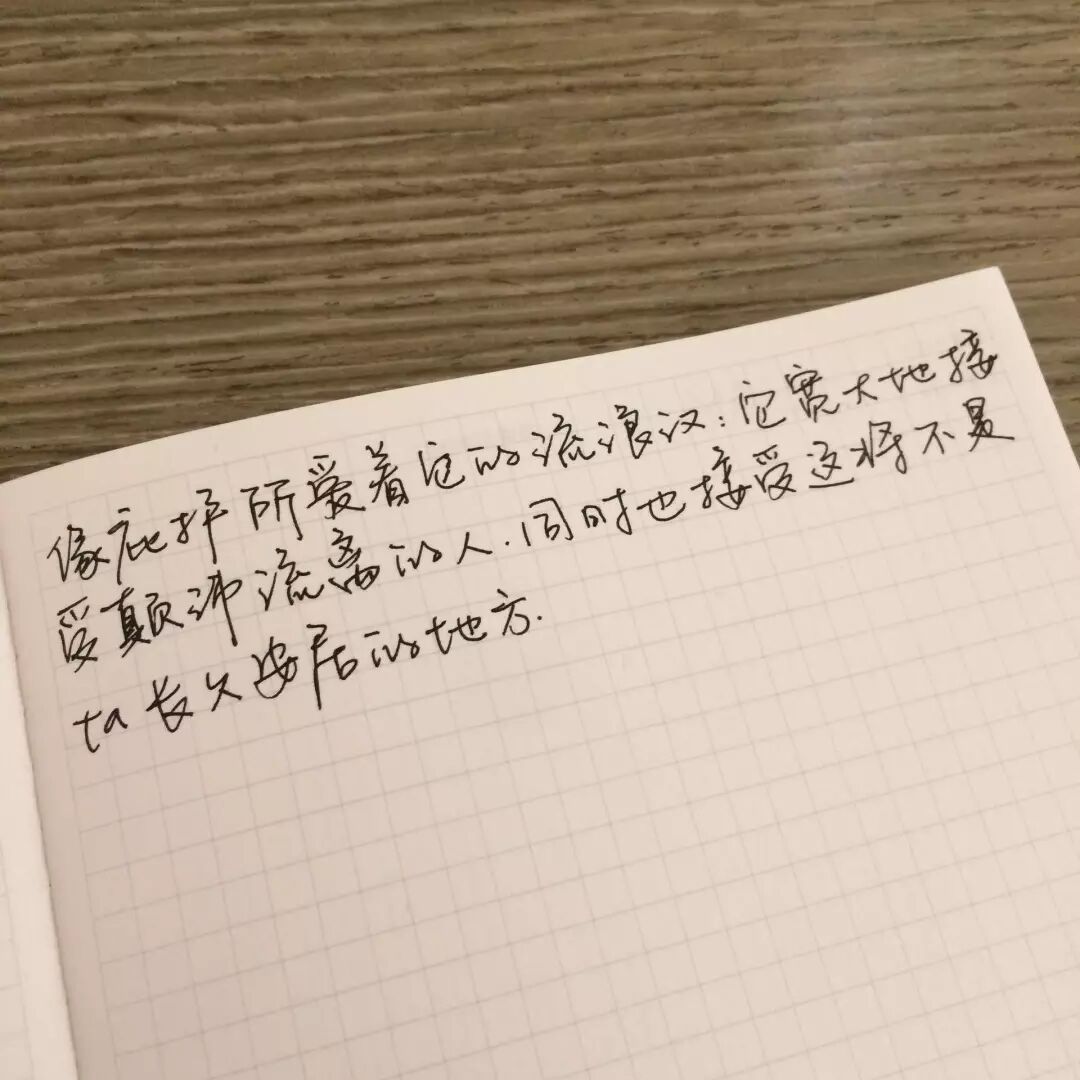 像庇护所爱着它的流浪汉:它宽大地接
受颠沛流离的人.同时也接受这将不是
ta长久安居的地方.